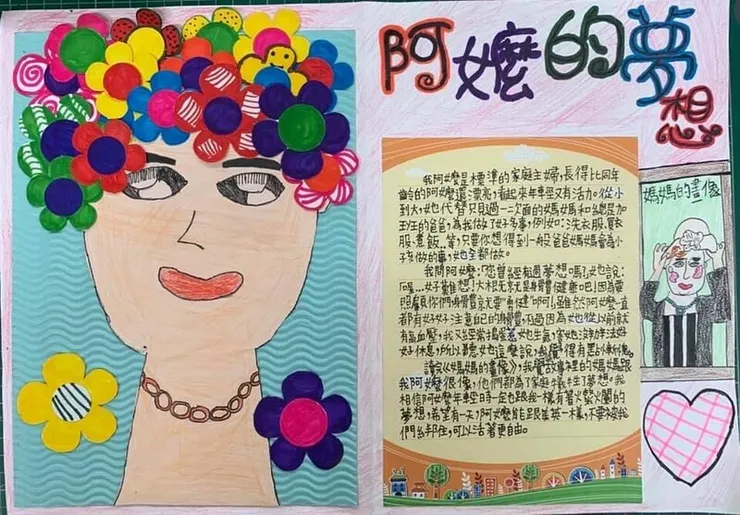 阿嬤的夢想
媽媽的畫像
我阿嬤是標準的家庭主婦，長得比同年
齡的阿嬤還漂亮，看起來年輕又有活力。從小
到大，她代替只見過一二次面的媽媽和總是加
班的爸爸，為我做了好多事，例如：洗衣服、買衣
服、煮飯…等，只要你想得到一般爸爸媽媽會為小
孩做的事，她全都做。
我問阿嬤：「您曾經有過夢想嗎？」她說：
「喔……好難想！大概就是身體健康吧！因為要
照顧你們身體就要顧健叩！」雖然阿嬤一直
都有好好注意自己的身體，不過因為她從以前就
有高血壓，我又經常搗蛋惹她生氣，害她沒辦法好
好休息，所以聽她這麼說，我覺得有點慚愧。
讀《媽媽的畫像》，我覺故事裡的媽媽跟
我阿嬤很像，他們都為了家庭犧牲了夢想。我
相信阿嬤年輕時一定也跟我一樣有著火熱熱的
夢想，希望有一天，阿嬤能跟美英一樣，不要被我
們綁住，可以活著更自由。